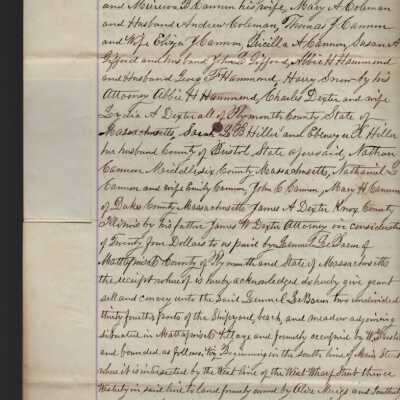 and Meereca D. Cannon his wife, Mary A Coleman
and Husband Andrew Coleman, Thomas J. Cannon
and Wife Eliza J Cannon, Pricilla A Cannon, Susan A
Gifford and husband John D. Gifford, Abbie H Hammond
and Husband Leno F. Hammond, Harry Snow by his
Attorney Abbie H Hammond, Charles Dexter and wife
Lydia A Dexter all of Plymouth County State of
Massachusetts, Sarah B Hiller and Ebenezer Hiller
her husband County of Bristol State aforesaid, Nathan
Cannon Middlesex County Massachusetts, Nathaniel
Cannon and wife Emily Cannon, John C Cannon, Mary H Cannon
of Dukes County Massachusetts James A Dexter Knox County
Illinois by his father James W Dexter Attorney in consideration
of Twenty four Dollars to us paid by Lemuel LeBaron of
Mattapoisett County of Plymouth and State of Massachusetts
the receipt whereof is hereby acknowledged do hereby give grant
sell and convey unto the Said Lemuel LeBaron two undivided
thirty fourths parts of the Shipyard, beach, and meadow adjoining
situated in Mattapoisett Village and formerly occupied by
and bounded as follows, Viz Beginning in the south line of Main Street
where it is intersected by the West line of the West Wharf Street thence
Westerly in said line to land formerly owned by Alice Meigs and